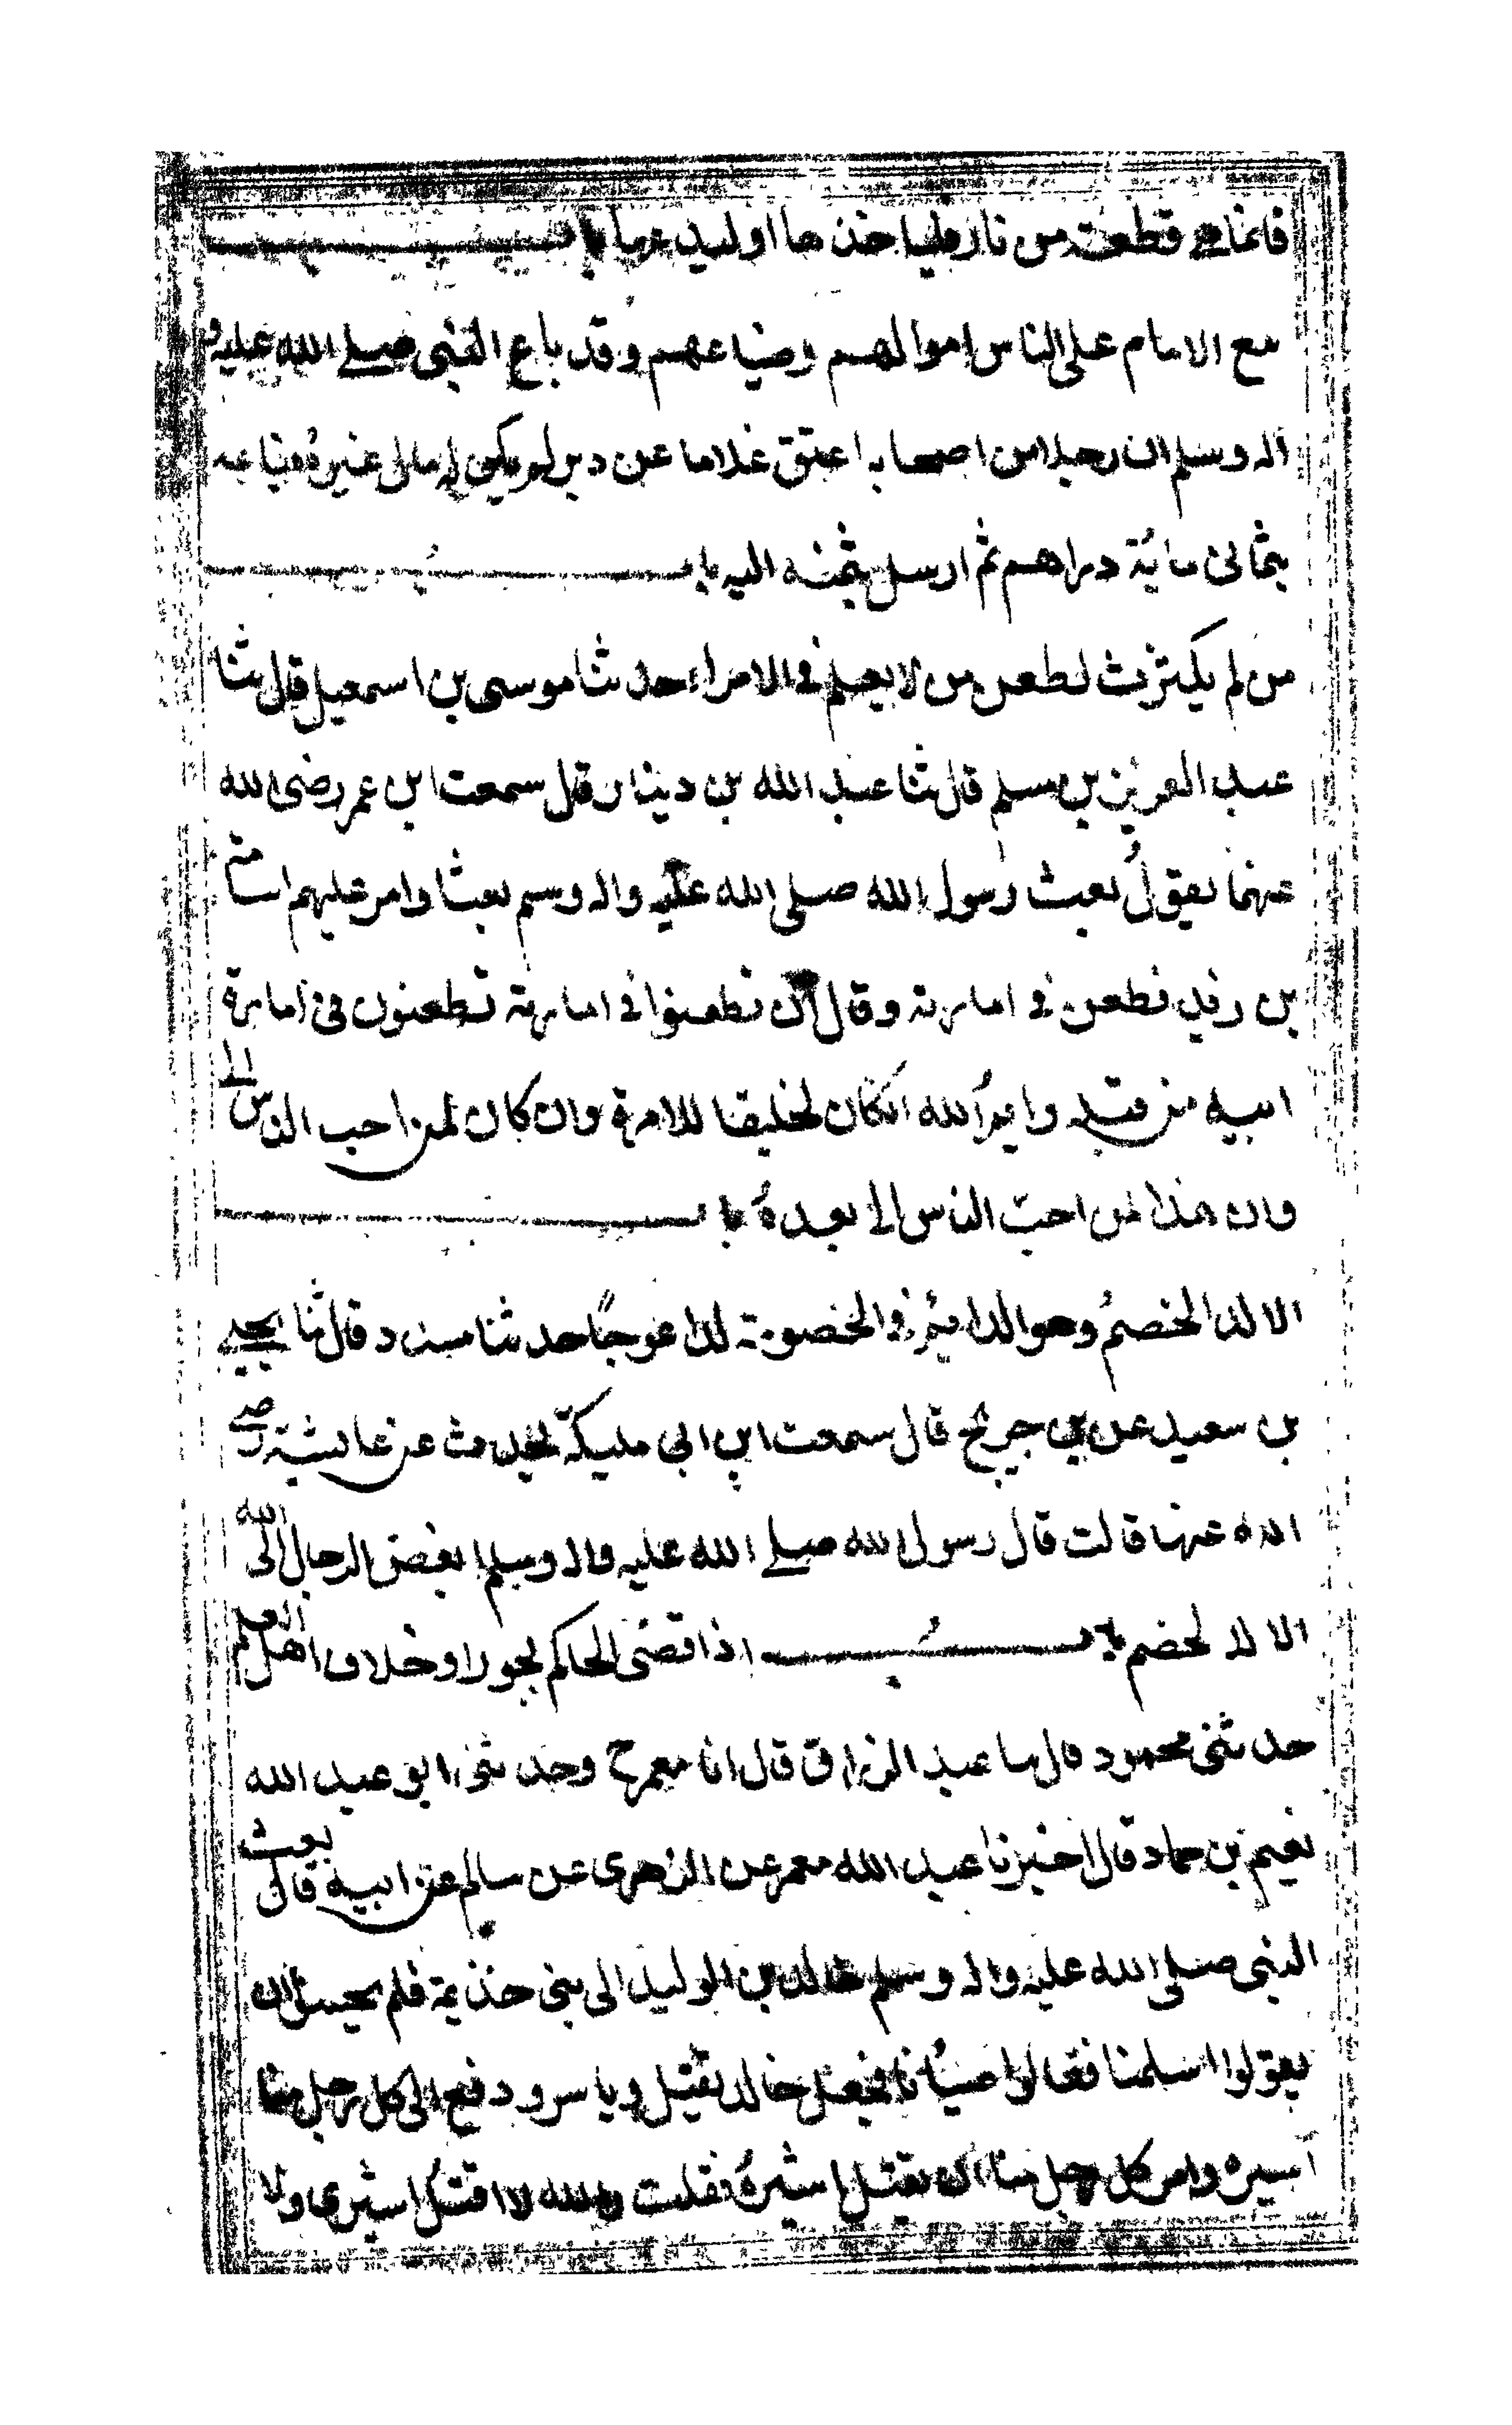 فانما هي قطعة من نار فلياخذها او ليدعها باب
بيع الامام على الناس اموالهم وضياعهم وقد باع النبى صلى الله عليه و
آله وسلم ان رجلا من اصحابه اعتق غلاما عن دبر لم يكن له مال غيره فباعه
بثمانى مائة دراهم ثم ارسل بثمنه اليه باب
من لم يكترث لطعن من لا يعلم في الامراء حدثنا موسى بن اسمعيل قال ثنا
عبد العزيز بن مسلم قال ثنا عبد الله بن دينار قال سمعت ابن عمر رضى الله
عنهما يقول بعث رسول الله صلى الله عليه واله وسلم بعثا وامر عليهم اسامة
بن زيد فطعن في امارته وقال ان تطعنوا في امارته تطعنون في امارة
ابيه من قبله وايم الله ان كان لخليقا للامرة وان كان لمن احب الناس الى
وان هذا لمن احب الناس الى بعده باب
الالد الخصم وهو الدائم في الخصومة لدا عوجا حدثنا مسدد قال ثنا يحيى
بن سعيد عن بن جريج قال سمعت ابن ابى مليكة يحدث عن عايشة رضى
الله عنها قالت قال رسول الله صلى الله عليه واله وسلم ابغض الرجال الى الله
الالد لخصم باب اذا قضى الحاكم بجور او خلاف اهل العلم
حدثنى محمود قال ثنا عبد الرزاق قال انا معمر ح وحدثنى ابو عبد الله
نعيم بن حماد قال اخبرنا عبد الله معمر عن الزهرى عن سالم عن ابيه قال بعث
النبى صلى الله عليه واله وسلم خالد بن الوليد الى بنى جذيمة فلم يحسن ان
يقولوا اسلمنا فقالوا صبأنا فجعل خالد يقتل وياسر ودفع الى كل رجل منا
اسيره وامر كل رجل منا ان يقتل اسيره فقلت والله لا اقتل اسيرى ولا